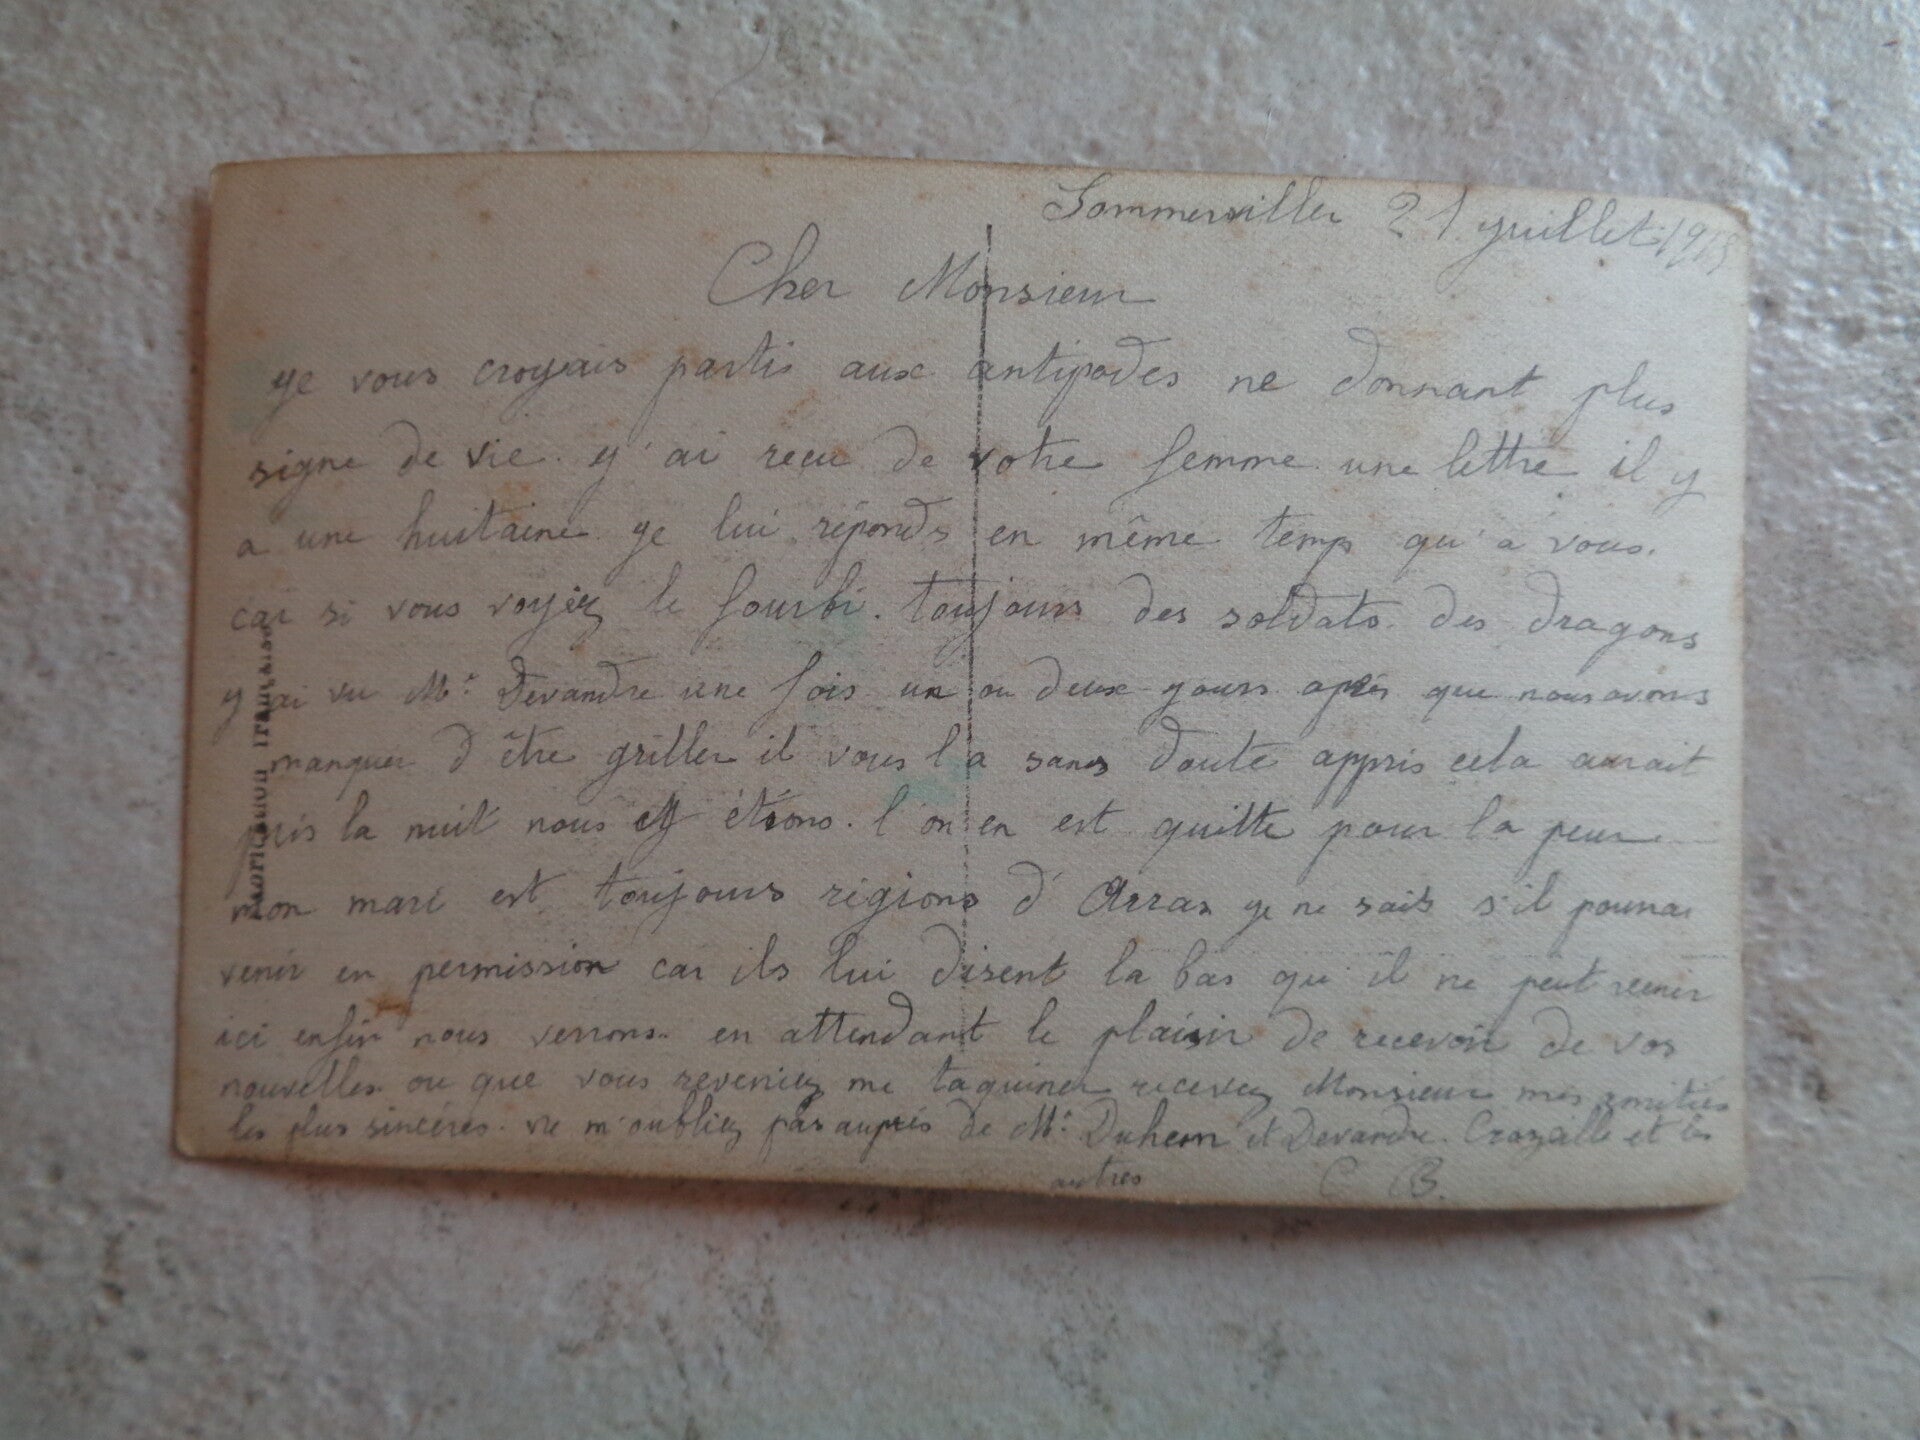 Sommerviller 21 yuillet 1915
Cher Monsieur
ye vous croyais partis aux antipodes ne donnant plus
signe de vie. y'ai recu de votre femme une lettre il y
a une huitaine ye lui réponds en même temps qu'a vous.
car si vous voyiéz le fourbi. toujours des soldats. des dragons
y ai vu Mr Devandre une fois un ou deux yours aprés que nous avons
manquer d'être griller il vous l'a sans doute appris cela aurait
pris la nuit nous y étions. l'on en est quitte pour la peur
mon mari est toujours régions d'Arras ye ne sais s'il pourra
venir en permission car ils lui disent la bas qu'il ne peut venir
ici enfin nous verrons. en attendant le plaisir de recevoir de vos
nouvelles ou que vous reveniez me taquiner recevez Monsieur mes amitiés
les plus sincéres. ne m'oubliez pas auprés de Mr Duhem et Devandre. Crozaille et les
autres C B.
Fabrication française